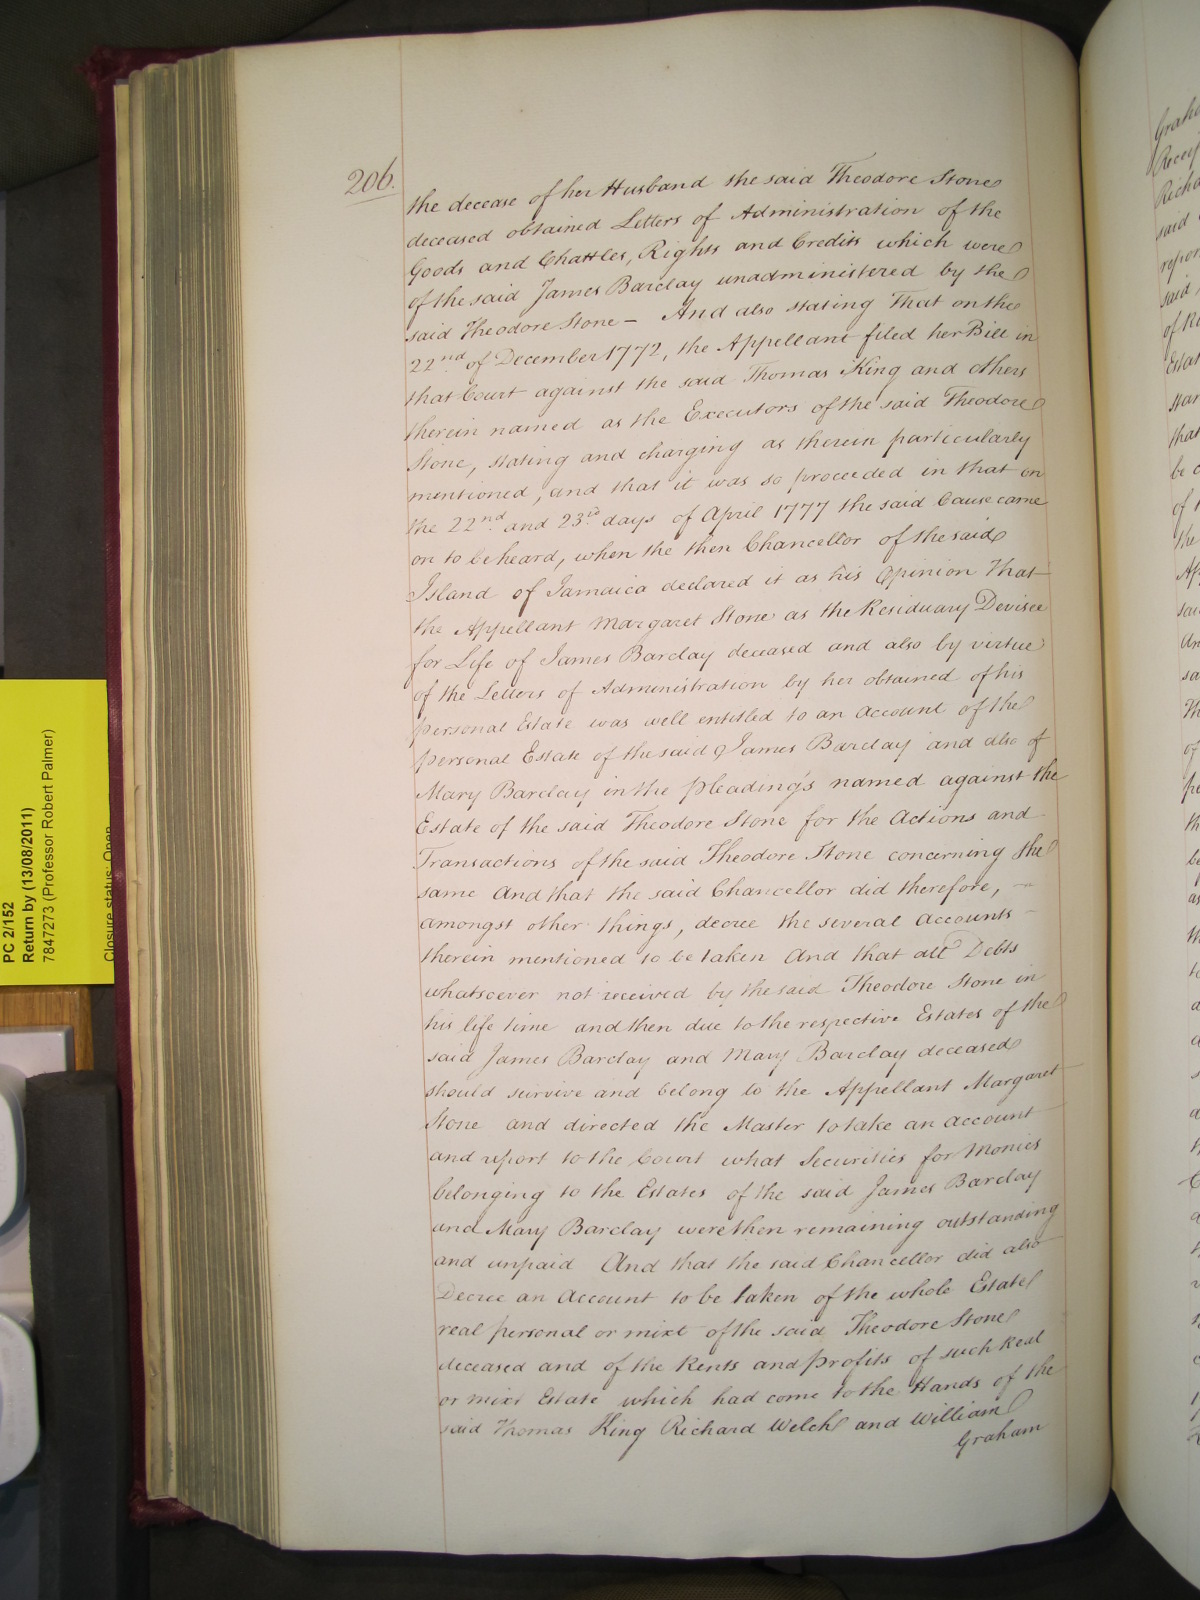 206.
the decease of her Husband the said Theodore Stone
deceased obtained Letters of Administration of the
Goods and Chattles, Rights and Credits which were
of the said James Barclay unadministered by the
said Theodore Stone – And also stating That on the
22nd of December 1772, the Appellant filed her Bill in
that Court against the said Thomas King and others
therein named as the Executors of the said Theodore
Stone, stating and charging as therein particularly
mentioned, and that it was so proceeded in that on
the 22nd and 23rd days of April 1777 the said Cause came
on to be heard, when the then Chancellor of the said
Island of Jamaica declared it as his Opinion That
the Appellant Margaret Stone as the Residuary Devisee
for Life of James Barclay deceased and also by virtue
of the Letters of Administration by her obtained of his
personal Estate was well entitled to an Account of the
personal Estate of the said James Barclay and also of
Mary Barclay in the pleading's named against the
Estate of the said Theodore Stone for the Actions and
Transactions of the said Theodore Stone concerning the
same And that the said Chancellor did therefore, –
amongst other things, decree the several Accounts –
therein mentioned to be taken And that all Debts
whatsoever not received by the said Theodore Stone in
his life time and then due to the respective Estates of the
said James Barclay and Mary Barclay deceased
should survive and belong to the Appellant Margaret
Stone and directed the Master to take an Account
and report to the Court what Securities for Monies
belonging to the Estates of the said James Barclay
and Mary Barclay were then remaining outstanding
and unpaid And that the said Chancellor did also
Decree an Account to be taken of the whole Estate
real personal or mixt of the said Theodore Stone
deceased and of the Rents and profits of such Real
or mixt Estate which had come to the Hands of the
said Thomas King Richard Welch and William
Graham
PC 2/152
Return by (13/08/2011)
7847273 (Professor Robert Palmer)
Closure status: Open